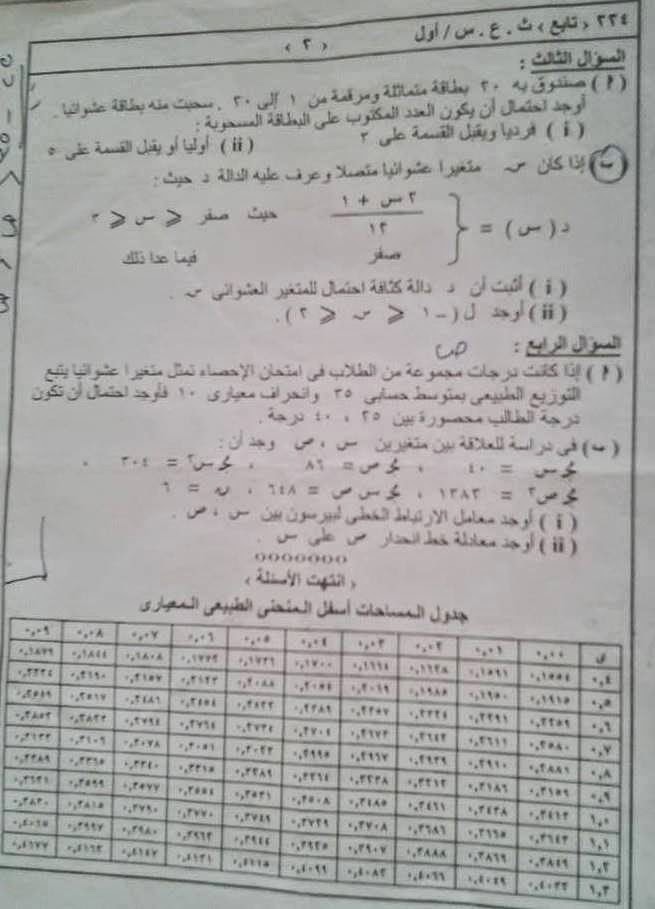 ٢٢٤ ‹ تابع › ث . ع . س / أول
‹ ٢ ›
السؤال الثالث :
( أ ) صندوق به ٢٠ بطاقة متماثلة ومرقمة من ١ إلى ٢٠ . سحبت منه بطاقة عشوائيا .
أوجد احتمال أن يكون العدد المكتوب على البطاقة المسحوبة :
( i ) فرديا ويقبل القسمة على ٣ ( ii ) أوليا أو يقبل القسمة على ٥
( ب ) إذا كان س متغيرا عشوائيا متصلا وعرف عليه الدالة د حيث :
د ( س ) = { ٢ س + ١ / ١٢ حيث صفر ⩽ س ⩽ ٣
صفر فيما عدا ذلك
( i ) أثبت أن د دالة كثافة احتمال للمتغير العشوائى س .
( ii ) أوجد ل ( – ١ ⩽ س ⩽ ٢ ) .
السؤال الرابع :
( أ ) إذا كانت درجات مجموعة من الطلاب فى امتحان الإحصاء تمثل متغيرا عشوائيا يتبع
التوزيع الطبيعى بمتوسط حسابى ٣٥ وانحراف معيارى ١٠ فأوجد احتمال أن تكون
درجة الطالب محصورة بين ٢٥ ، ٤٠ درجة .
( ب ) فى دراسة للعلاقة بين متغيرين س ، ص وجد أن :
مجـ س = ٤٠ ، مجـ ص = ٨٦ ، مجـ س٢ = ٣٠٤ ،
مجـ ص٢ = ١٣٨٣ ، مجـ س ص = ٦٤٨ ، ن = ٦
( i ) أوجد معامل الارتباط الخطى لبيرسون بين س ، ص .
( ii ) أوجد معادلة خط انحدار ص على س .
٥٥٥٥٥٥٥
‹ انتهت الأسئلة ›
جدول المساحات أسفل المنحنى الطبيعى المعيارى
ى ٠,٠٠ ٠,٠١ ٠,٠٢ ٠,٠٣ ٠,٠٤ ٠,٠٥ ٠,٠٦ ٠,٠٧ ٠,٠٨ ٠,٠٩
٠,٤ ٠,١٥٥٤ ٠,١٥٩١ ٠,١٦٢٨ ٠,١٦٦٤ ٠,١٧٠٠ ٠,١٧٣٦ ٠,١٧٧٢ ٠,١٨٠٨ ٠,١٨٤٤ ٠,١٨٧٩
٠,٥ ٠,١٩١٥ ٠,١٩٥٠ ٠,١٩٨٥ ٠,٢٠١٩ ٠,٢٠٥٤ ٠,٢٠٨٨ ٠,٢١٢٣ ٠,٢١٥٧ ٠,٢١٩٠ ٠,٢٢٢٤
٠,٦ ٠,٢٢٥٩ ٠,٢٢٩١ ٠,٢٣٢٤ ٠,٢٣٥٧ ٠,٢٣٨٩ ٠,٢٤٢٢ ٠,٢٤٥٤ ٠,٢٤٨٦ ٠,٢٥١٧ ٠,٢٥٤٩
٠,٧ ٠,٢٥٨٠ ٠,٢٦١١ ٠,٢٦٤٢ ٠,٢٦٧٣ ٠,٢٧٠٤ ٠,٢٧٣٤ ٠,٢٧٦٤ ٠,٢٧٩٤ ٠,٢٨٢٣ ٠,٢٨٥٢
٠,٨ ٠,٢٨٨١ ٠,٢٩١٠ ٠,٢٩٣٩ ٠,٢٩٦٧ ٠,٢٩٩٥ ٠,٣٠٢٣ ٠,٣٠٥١ ٠,٣٠٧٨ ٠,٣١٠٦ ٠,٣١٣٣
٠,٩ ٠,٣١٥٩ ٠,٣١٨٦ ٠,٣٢١٢ ٠,٣٢٣٨ ٠,٣٢٦٤ ٠,٣٢٨٩ ٠,٣٣١٥ ٠,٣٣٤٠ ٠,٣٣٦٥ ٠,٣٣٨٩
١,٠ ٠,٣٤١٣ ٠,٣٤٣٨ ٠,٣٤٦١ ٠,٣٤٨٥ ٠,٣٥٠٨ ٠,٣٥٣١ ٠,٣٥٥٤ ٠,٣٥٧٧ ٠,٣٥٩٩ ٠,٣٦٢١
١,١ ٠,٣٦٤٣ ٠,٣٦٦٥ ٠,٣٦٨٦ ٠,٣٧٠٨ ٠,٣٧٢٩ ٠,٣٧٤٩ ٠,٣٧٧٠ ٠,٣٧٩٠ ٠,٣٨١٥ ٠,٣٨٣٠
١,٢ ٠,٣٨٤٩ ٠,٣٨٦٩ ٠,٣٨٨٨ ٠,٣٩٠٧ ٠,٣٩٢٥ ٠,٣٩٤٤ ٠,٣٩٦٢ ٠,٣٩٨٠ ٠,٣٩٩٧ ٠,٤٠١٥
١,٣ ٠,٤٠٣٢ ٠,٤٠٤٩ ٠,٤٠٦٦ ٠,٤٠٨٢ ٠,٤٠٩٩ ٠,٤١١٥ ٠,٤١٣١ ٠,٤١٤٧ ٠,٤١٦٢ ٠,٤١٧٧